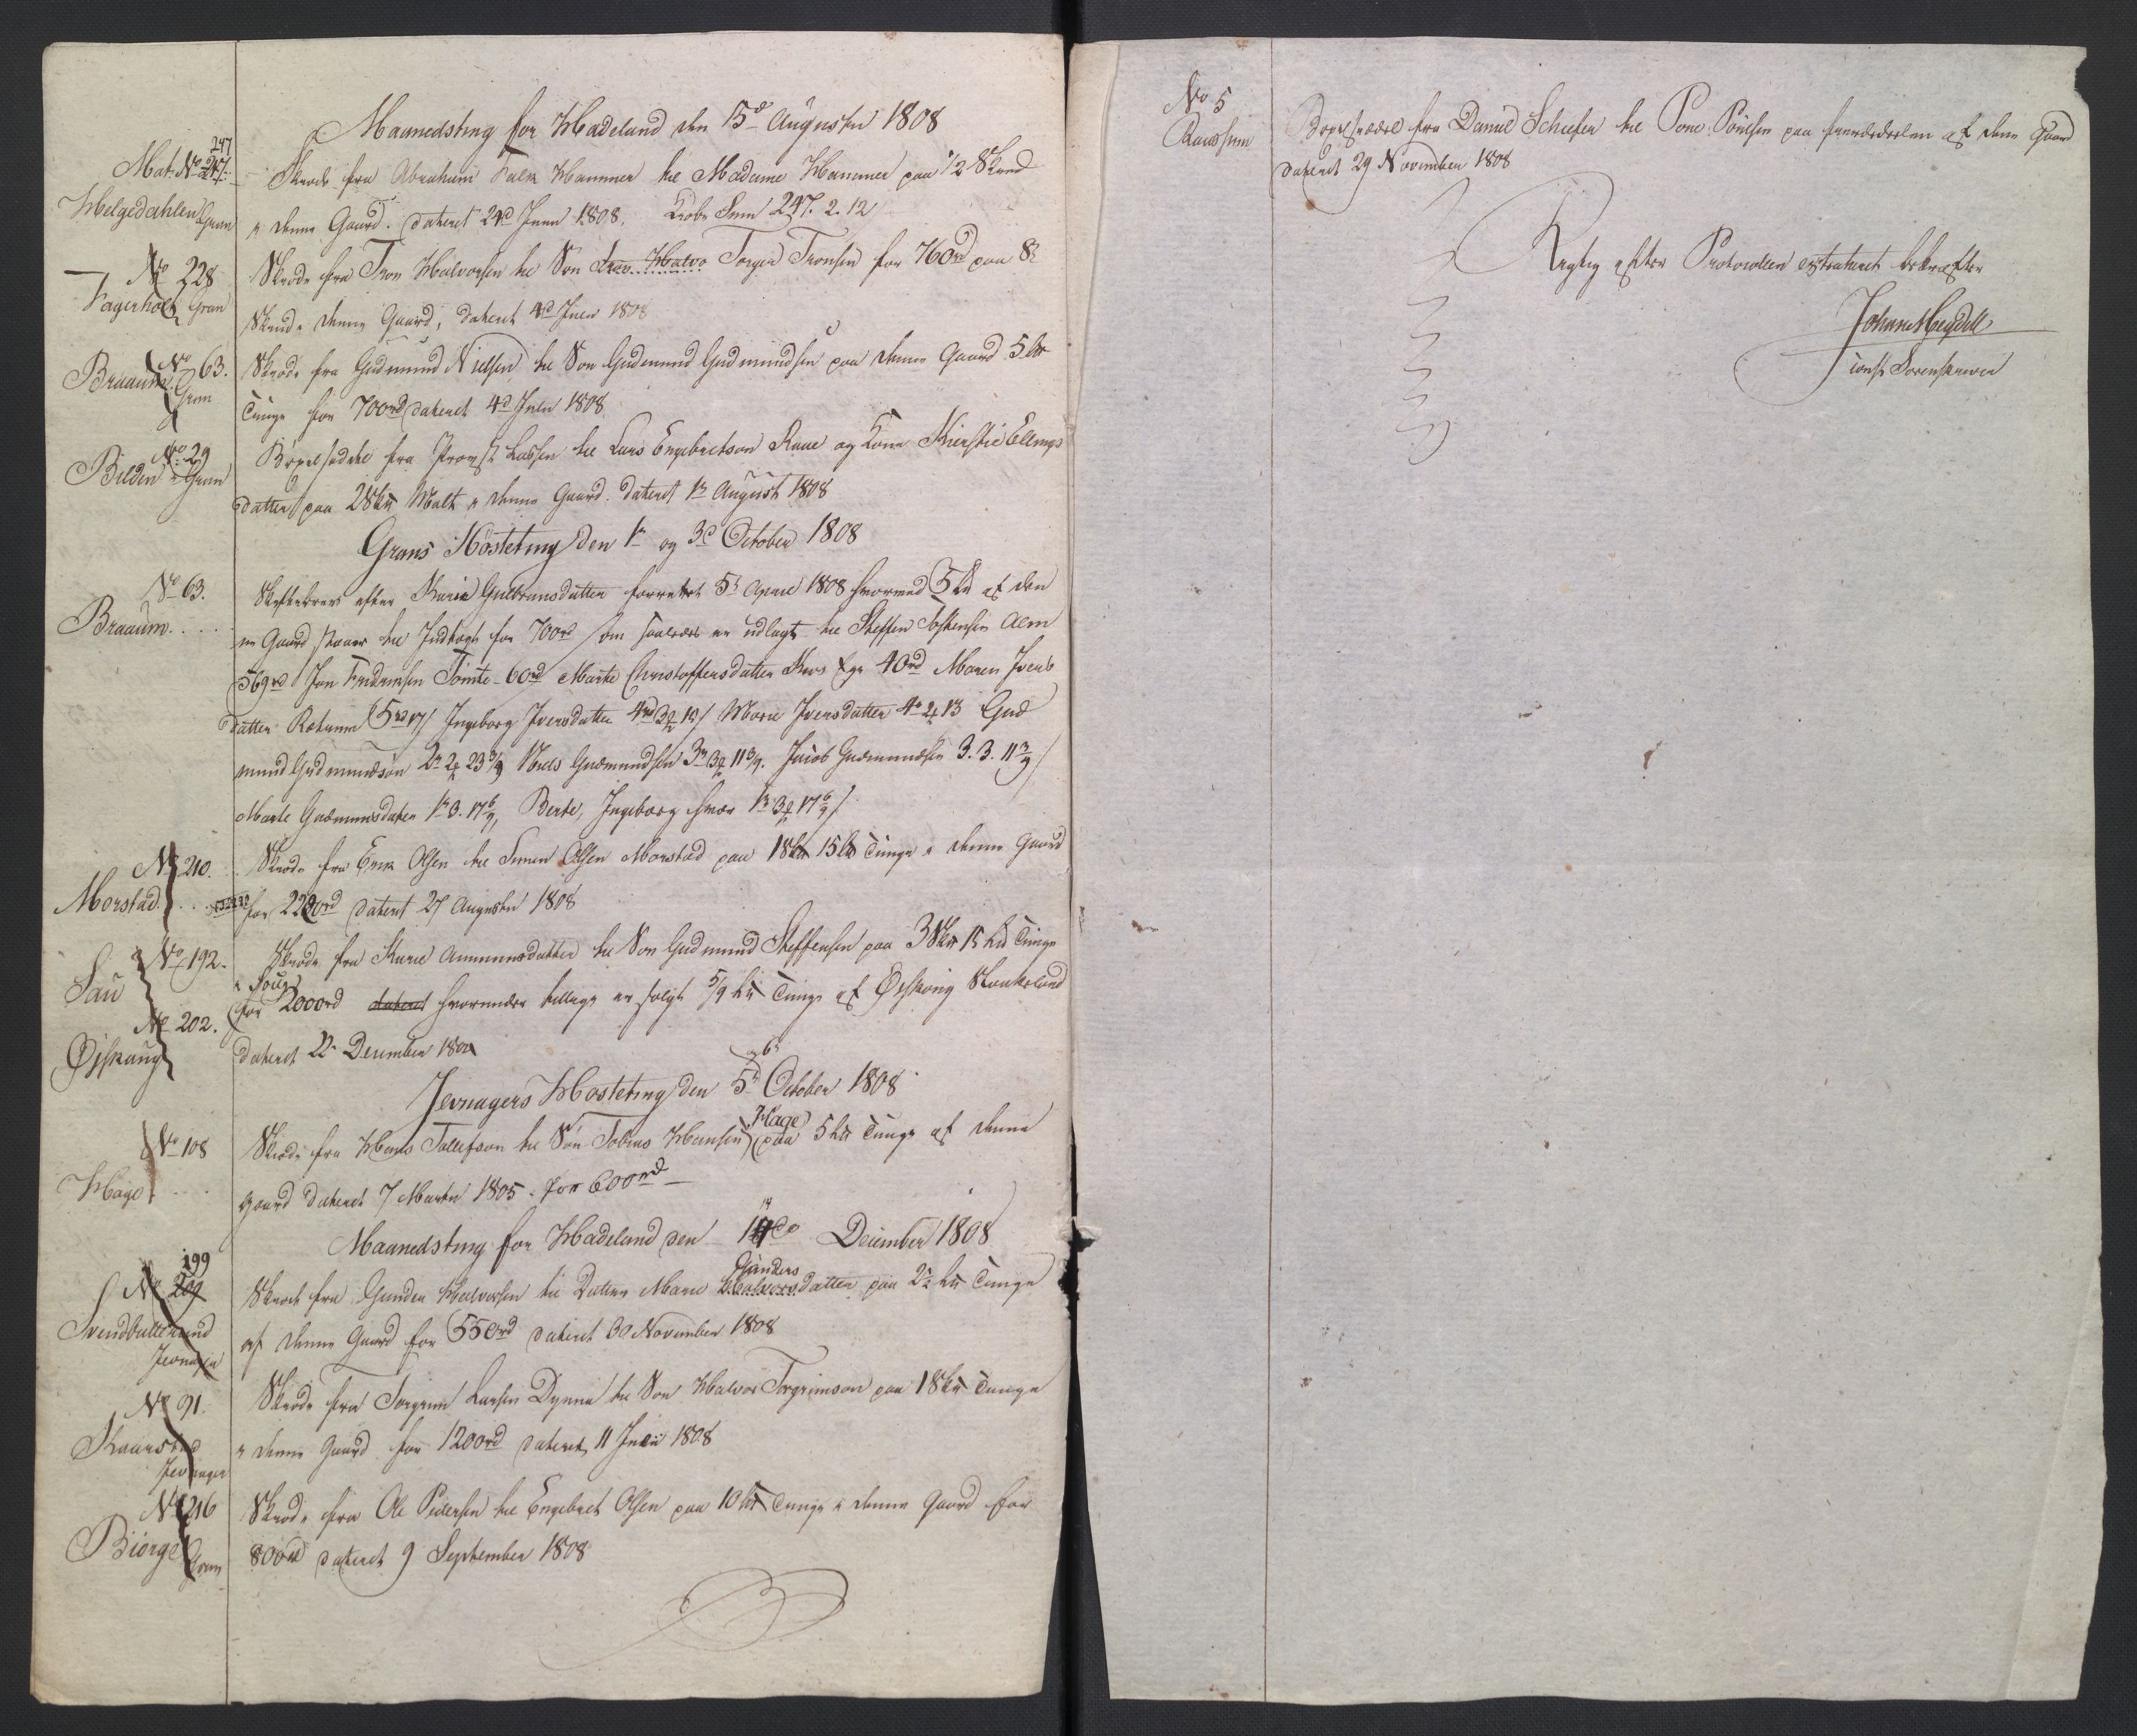 Maanedsting for Hadeland den 15de Augustii 1808
247
Mat: No 247.
Helgedahlen Gran
Skiøde fra Abraham Falk Hammer til Madame Hammer paa 1/2 Skind
i denne Gaard. dateret 24d Junii 1808. Kiøbe Sum 247. 2. 12
No 228
Hagerholt Gran
Skiøde fra Tron Halvorsen til Søn Halvo Torger Tronsen for 760rd paa 8
Skind i denne Gaard, dateret 4d Junii 1808
No 63.
Braaum Gran
Skiøde fra Gudmund Nielsen til Søn Gudmund Gudmundsen paa denne Gaard 5 L℔
Tunge for 700rd dateret 4d Julii 1808
No 29
Bilden Gran
Bøxelseddel fra Provst Lassen til Lars Engebretson Raae og Kone Kierstie Ellings
datter paa 2 Sk℔ Malt i denne Gaard. dateret 1te August 1808
Grans Høsteting den 1te og 3d October 1808
No 63.
Braaum.....
Skiftebrev efter Karie Gulbransdatter forrettet 5t April 1808 hvorved 5 L℔ af den
ne Gaard staaer til Indtægt for 700rd som saaledes er udlagt til Steffen Alm
569rd Jon Tomte 60rd Marte Christoffersdatter 40rd Maren Ivers
datter 5rd 17/ Ingeborg Iversdatter 4rd 3 Marie Iversdatter 4 2 13 Gud
mund Gudmundsøn 2rd 2 23 3/9 Niels Gudmundsen 3rd 3 11 3/9. Jacob Gudmundsen 3. 3. 11 3/9/
Marte Gudmundsdatter 1rd 3. 17 6/9, Berte, Ingeborg hver 1rd 3 17 6/9/
No 210.
Morstad
Skiøde fra Erik Olsen til Simen Olsen Morstad paa 1 Sk℔ 15 L℔ Tunge i denne Gaard
for 2200rd dateret 27 Augustii 1808
No 192.
Sau
Skiøde fra Karie Ammundsdatter til Søn Gudmund Steffensen paa 3 Sk℔ 15 L℔ Tunge
i Soug
for 2000rd dateret hvorunder tillige er solgt 5/9 L℔ Tunge af Øiskoug
No 202.
Øiskaug
dateret 22 December 1800
Jevnagers Høsteting den 5te 6t October 1808
No 108
Hage
Skiøde fra Hans Tollefson til Søn Tobias Hansen Hage paa 5 L℔ Tunge af denne
Gaard dateret 7 Martii 1805. for 600rd
Maanedsting for Hadeland den December 1808
199
No 209
Svendbutterud
Jevnager
Skiøde fra Gunder Halvorsen til Datter Marie Gunders Halvors datter paa 2 1/2 L℔ Tunge
af denne Gaard for 550rd dateret 30 November 1808
No 91.
Kaarstad
Jevnager
Skiøde fra Torgrim Larsen Dynna til Søn Halvor Torgrimson paa 1 Sk℔ Tunge
i denne Gaard for 1200rd dateret 11 Julii 1808
No 216
Biørge Gran
Skiøde fra Ole Pedersen til Engebret Olsen paa 10 L℔ Tunge i denne Gaard for
800rd dateret 9 September 1808
No 5
Raassum
Bøxelseddel fra Daniel Schiefer til Povel Povelsen paa af denne Gaard
dateret 29 November 1808
Rigtig efter Protocollen extraheret bekræfter
const Sorenskriver